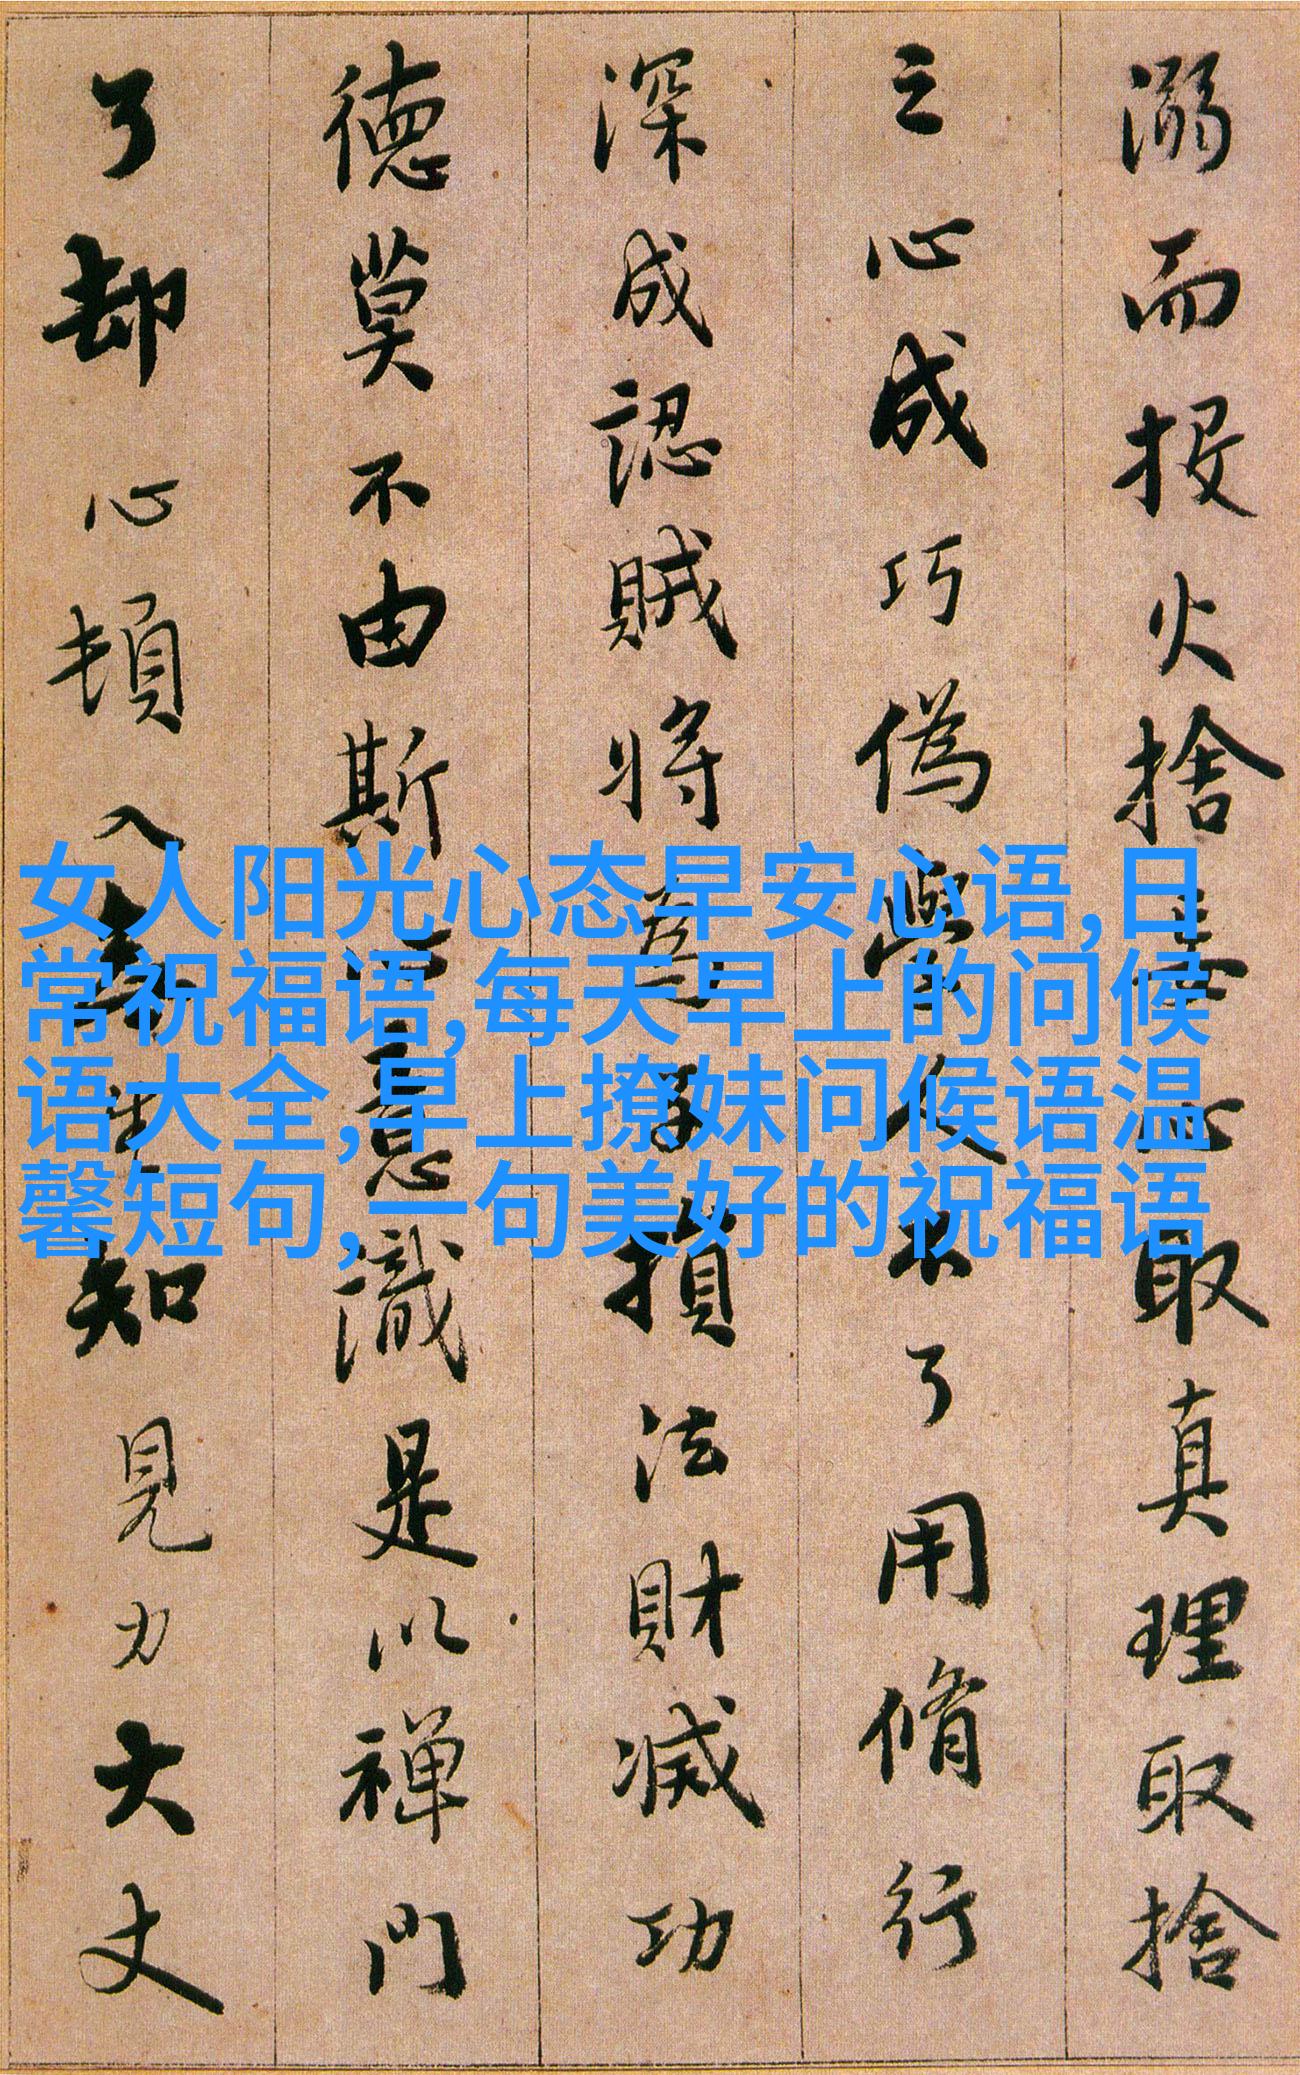 溺而投火捨妄心取真理取捨
之心成巧偽學人不了用脩行
深成認賊將為子損法財滅功
德莫不由斯心意識是以禪門
了却心頓入無生知見力大丈
女人阳光心态早安心语,日
常祝福语,每天早上的问候
语大全,早上撩妹问候语温
馨短句,一句美好的祝福语